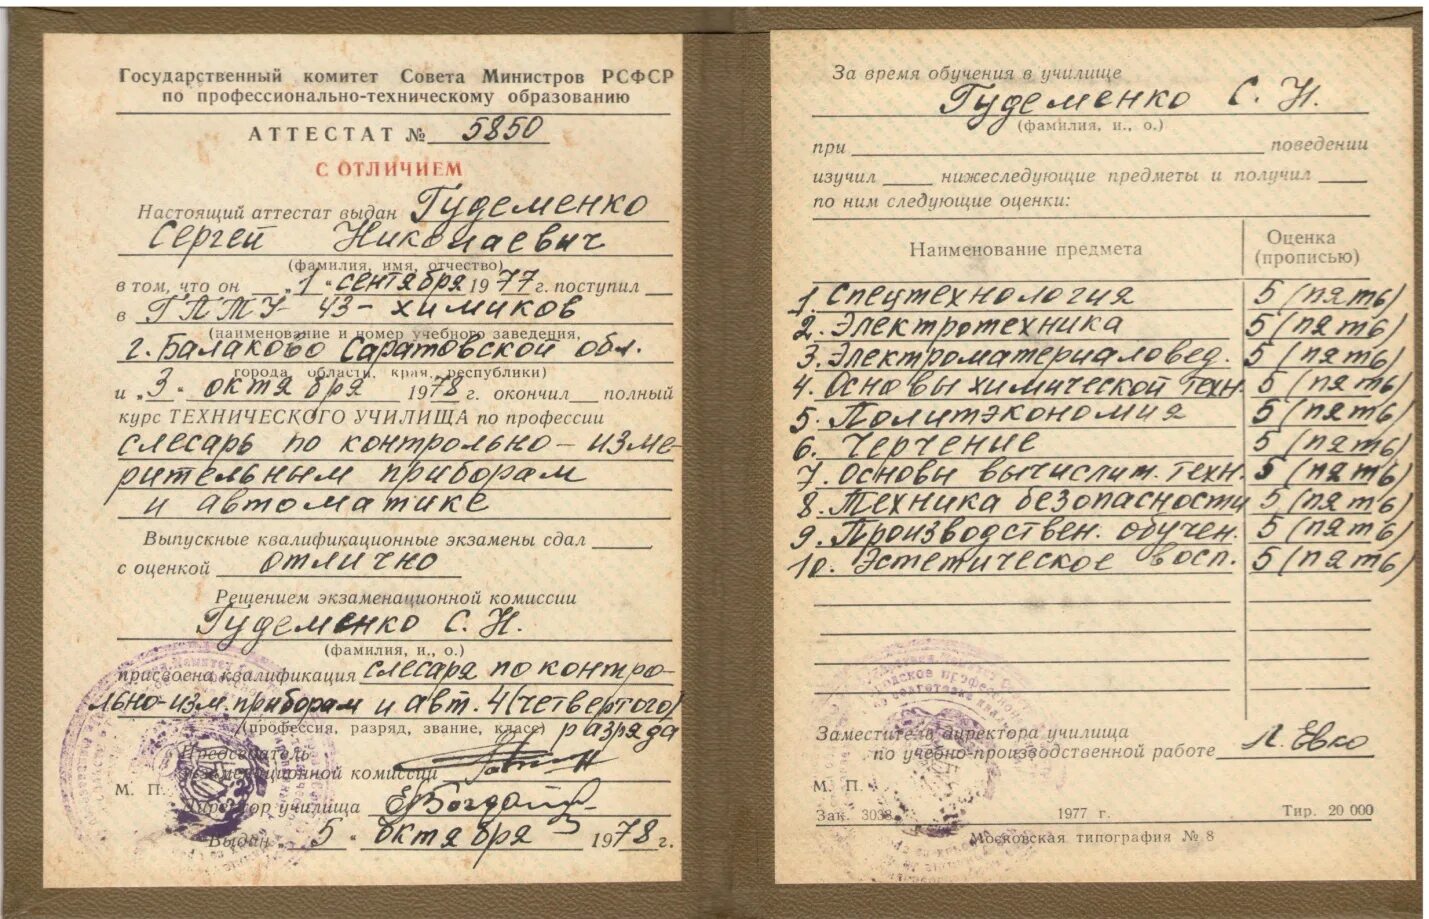 Государственный комитет Совета Министров РСФСР
по профессионально-техническому образованию
АТТЕСТАТ № 5850
С ОТЛИЧИЕМ
Настоящий аттестат выдан Гудеменко
Сергей Николаевич
(фамилия, имя, отчество)
в том, что он „1“ сентября 1977 г. поступил
в ГПТУ-43-химиков
(наименование и номер учебного заведения,
г. Балаково Саратовской обл.
города, области, края, республики)
и „3“ октября 1978 г. окончил полный
курс ТЕХНИЧЕСКОГО УЧИЛИЩА по профессии
слесарь по контрольно-изме-
рительным приборам
и автоматике
Выпускные квалификационные экзамены сдал
с оценкой отлично
Решением экзаменационной комиссии
Гудеменко С. Н.
(фамилия, и., о.)
присвоена квалификация слесаря по контро-
льно-изм. приборам и авт. 4 (четвертого)
(профессия, разряд, звание, класс) разряда
Председатель
экзаменационной комиссии
М. П.
Директор училища
Выдан „5“ октября 1978 г.
За время обучения в училище
Гудеменко С. Н.
(фамилия, и., о.)
при поведении
изучил нижеследующие предметы и получил
по ним следующие оценки:
Наименование предмета Оценка (прописью)
1. Спецтехнология 5 (пять)
2. Электротехника 5 (пять)
3. Электроматериаловед. 5 (пять)
4. Основы химической техн. 5 (пять)
5. Политэкономия 5 (пять)
6. Черчение 5 (пять)
7. Основы вычислит. техн. 5 (пять)
8. Техника безопасности 5 (пять)
9. Производствен. обучен. 5 (пять)
10. Эстетическое восп. 5 (пять)
Заместитель директора училища
по учебно-производственной работе Л. Евко
М. П.
Зак. 3038 1977 г. Тир. 20 000
Московская типография № 8